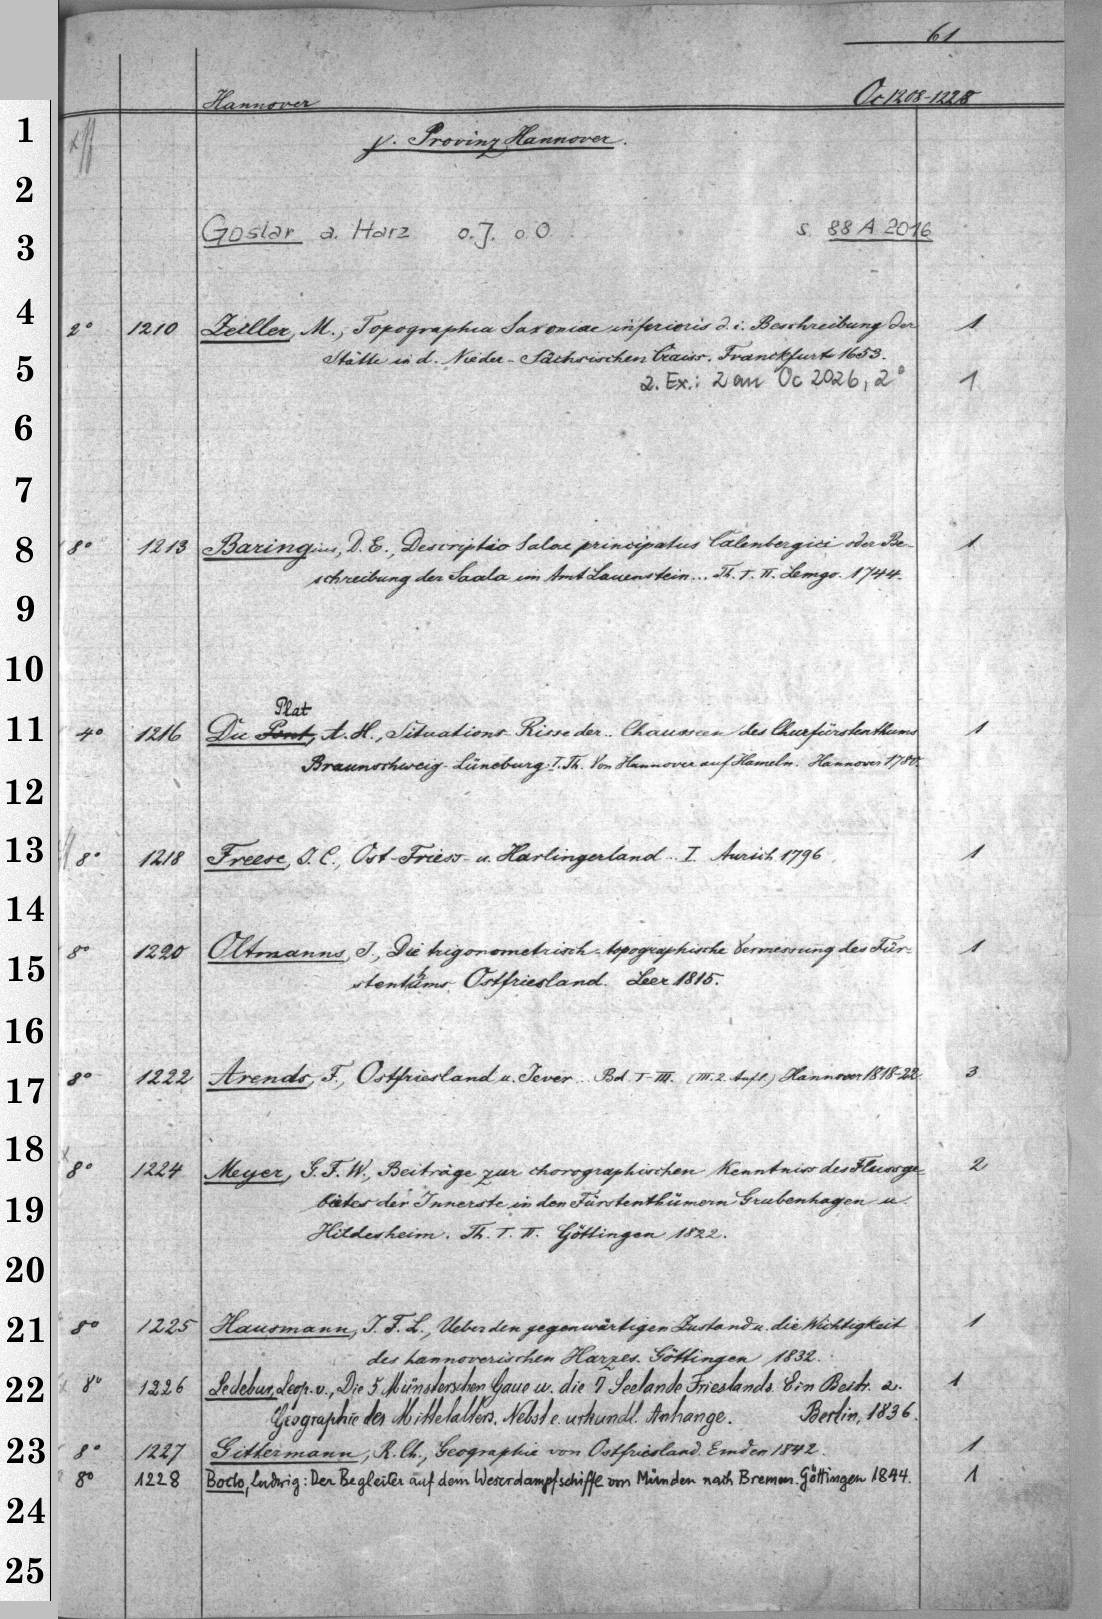 61
Hannover Oc 1208-1228
γ. Provinz Hannover.
Goslar a. Harz o. J. o O s. 88 A 2016
2° 1210 Zeiller, M., Topographia Saxoniae inferioris d. i. Beschreibung der 1
Stätte in d. Nieder-Sächsischen Craiss. Franckfurt 1653.
2. Ex.: 2 an Oc 2026, 2° 1
8° 1213 Baringius, D. E., Descriptio Salae principatus Calenbergici oder Be- 1
schreibung der Saala im Amt Lauenstein... Th. I. II. Lemgo. 1744.
Plat
4° 1216 Du Pont, A. H., Situations-Risse der.. Chausseen des Churfürstenthums 1
Braunschweig-Lüneburg. I. Th. Von Hannover auf Hameln. Hannover 1780.
8° 1218 Freese, J. C., Ost-Friess- u. Harlingerland.. I. Aurich 1796. 1
8° 1220 Oltmanns, J., Die trigonometrisch-topographische Vermessung des Für- 1
stenthums Ostfriesland. Leer 1815.
8° 1222 Arends, F., Ostfriesland u. Jever... Bd. I-III. (III. 2. Aufl.) Hannover 1818-22. 3
8° 1224 Meyer, G. F. W., Beiträge zur chorographischen Kenntniss des Flussge- 2
bietes der Innerste in den Fürstenthümern Grubenhagen u.
Hildesheim. Th. I. II. Göttingen 1822.
8° 1225 Hausmann, J. F. L., Ueber den gegenwärtigen Zustand u. die Wichtigkeit 1
des hannoverischen Harzes. Göttingen 1832.
8° 1226 Ledebur, Leop. v., Die 5 Münsterschen Gaue u. die 7 Seelande Frieslands. Ein Beitr. z. 1
Geographie des Mittelalters. Nebst e. urkundl. Anhange. Berlin, 1836.
8° 1227 Gittermann, R. Ch., Geographie von Ostfriesland. Emden 1842. 1
8° 1228 Bodo, Ludwig: Der Begleiter auf dem Weserdampfschiffe von Münden nach Bremen. Göttingen 1844. 1
1
2
3
4
5
6
7
8
9
10
11
12
13
14
15
16
17
18
19
20
21
22
23
24
25